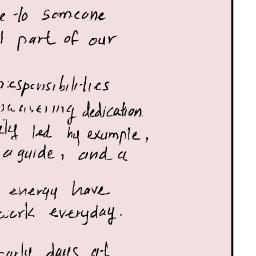 e to someone
l part of our
responsibilities
dedication
led by example,
a guide, and a
energy have
work everyday.
early days at